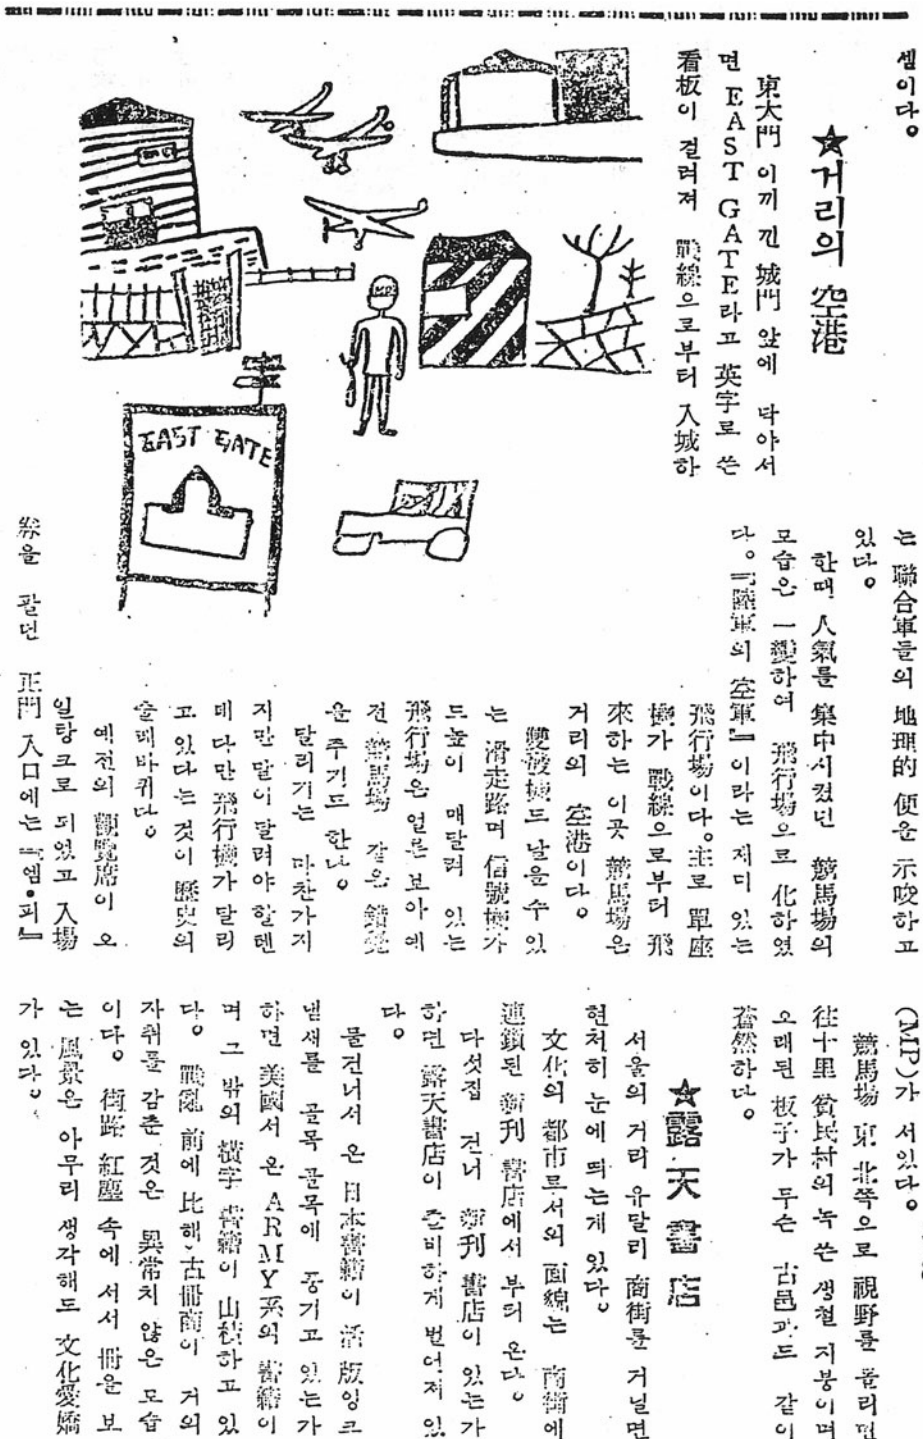 셈이다。
★거리의 空港
東大門 이끼 낀 城門 앞에 닥아서
면 EAST GATE라고 英字로 쓴
看板이 걸려저 戰線으로부터 入城하
는 聯合軍들의 地理的 便을 示唆하고
있다。
한때 人氣를 集中시켰던 競馬場의
모습은 一變하여 飛行場으로 化하였
다。『陸軍의 空軍』이라는 재미 있는
飛行場이다。主로 單座
機가 戰線으로부터 飛
來하는 이곳 競馬場은
거리의 空港이다。
雙發機도 날을 수 있
는 滑走路며 信號機가
드높이 매달려 있는
飛行場은 얼른 보아 예
전 競馬場 같은 錯覺
을 주기도 한다。
달리기는 마찬가지
지만 말이 달려야 할텐
데 다만 飛行機가 달리
고 있다는 것이 歷史의
술레바퀴다。
예전의 觀覽席이 오
일탕크로 되였고 入場
券을 팔던 正門 入口에는 『엠•피』
(MP)가 서있다。
競馬場 東北쪽으로 視野를 돌리면
往十里 貧民村의 녹 쓴 생철 지붕이며
오래된 板子가 무슨 古邑과도 같이
蒼然하다。
★露天書店
서울의 거리 유달리 商街를 거닐면
현저히 눈에 띄는게 있다。
文化의 都市로서의 面貌는 商街에
連鎖된 新刊 書店에서 부터 온다。
다섯집 건너 新刊 書店이 있는가
하면 露天書店이 즐비하게 벌어저 있
다。
물건너서 온 日本書籍이 活版잉크
냄새를 골목 골목에 풍기고 있는가
하면 美國서 온 ARMY系의 書籍이
며 그 밖의 橫字 書籍이 山積하고 있
다。 戰亂 前에 比해 古冊商이 거의
자취를 감춘 것은 異常치 않은 모습
이다。 街路 紅塵 속에 서서 冊을 보
는 風景은 아무리 생각해도 文化愛嬌
가 있다。
EAST GATE